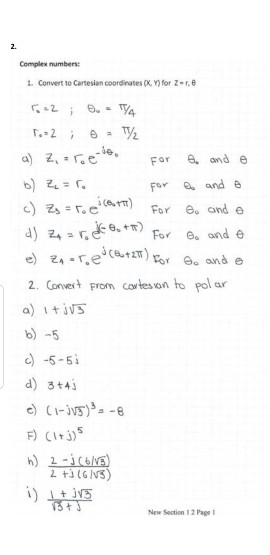 2.
Complex numbers:
1. Convert to Cartesian coordinates (X, Y) for Z = r, θ
r₀ = 2 ; θ₀ = π/4
r₀ = 2 ; θ = π/2
a) Z₁ = r₀e^{-jθ₀} For θ₀ and θ
b) Z₂ = r₀ For θ₀ and θ
c) Z₃ = r₀e^{j(θ₀+π)} For θ₀ and θ
d) Z₄ = r₀e^{j(-θ₀+π)} For θ₀ and θ
e) Z₄ = r₀e^{j(θ₀+2π)} For θ₀ and θ
2. Convert From cartesian to polar
a) 1+j√3
b) -5
c) -5-5j
d) 3+4j
e) (1-j√3)³ = -8
F) (1+j)⁵
h) 2-j(6/√3) / 2+j(6/√3)
i) 1+j√3 / √3+j
New Section 1 2 Page 1